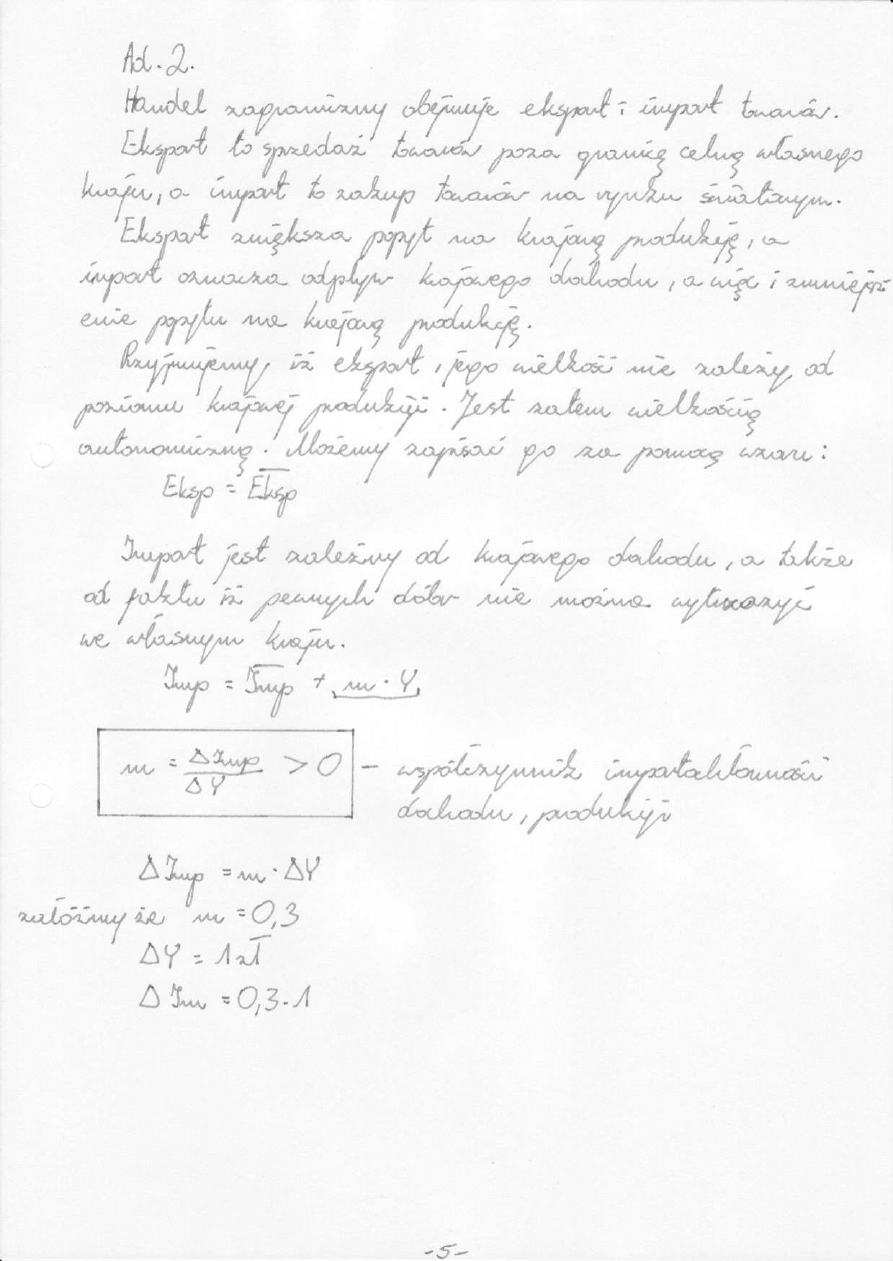 Ad. 2.
Handel zagraniczny obejmuje eksport i import towarów.
Eksport to sprzedaż towarów poza granicę celną własnego
kraju, a import to zakup towarów na rynku światowym.
Eksport zwiększa popyt na krajową produkcję, a
import oznacza odpływ krajowego dochodu, a więc i zmniejsz
enie popytu na krajową produkcję.
Przyjmujemy, iż eksport, jego wielkość nie zależy od
poziomu krajowej produkcji. Jest zatem wielkością
autonomiczną. Możemy zapisać go za pomocą wzoru:
Eksp = E̅k̅s̅p̅
Import jest zależny od krajowego dochodu, a także
od faktu iż pewnych dóbr nie można wytworzyć
we własnym kraju.
Imp = I̅m̅p̅ + m · Y
m = ΔImp / ΔY > 0 – współczynnik importochłonności
dochodu, produkcji
ΔImp = m · ΔY
załóżmy że m = 0,3
ΔY = 1 zł
ΔIm = 0,3 · 1
-5-